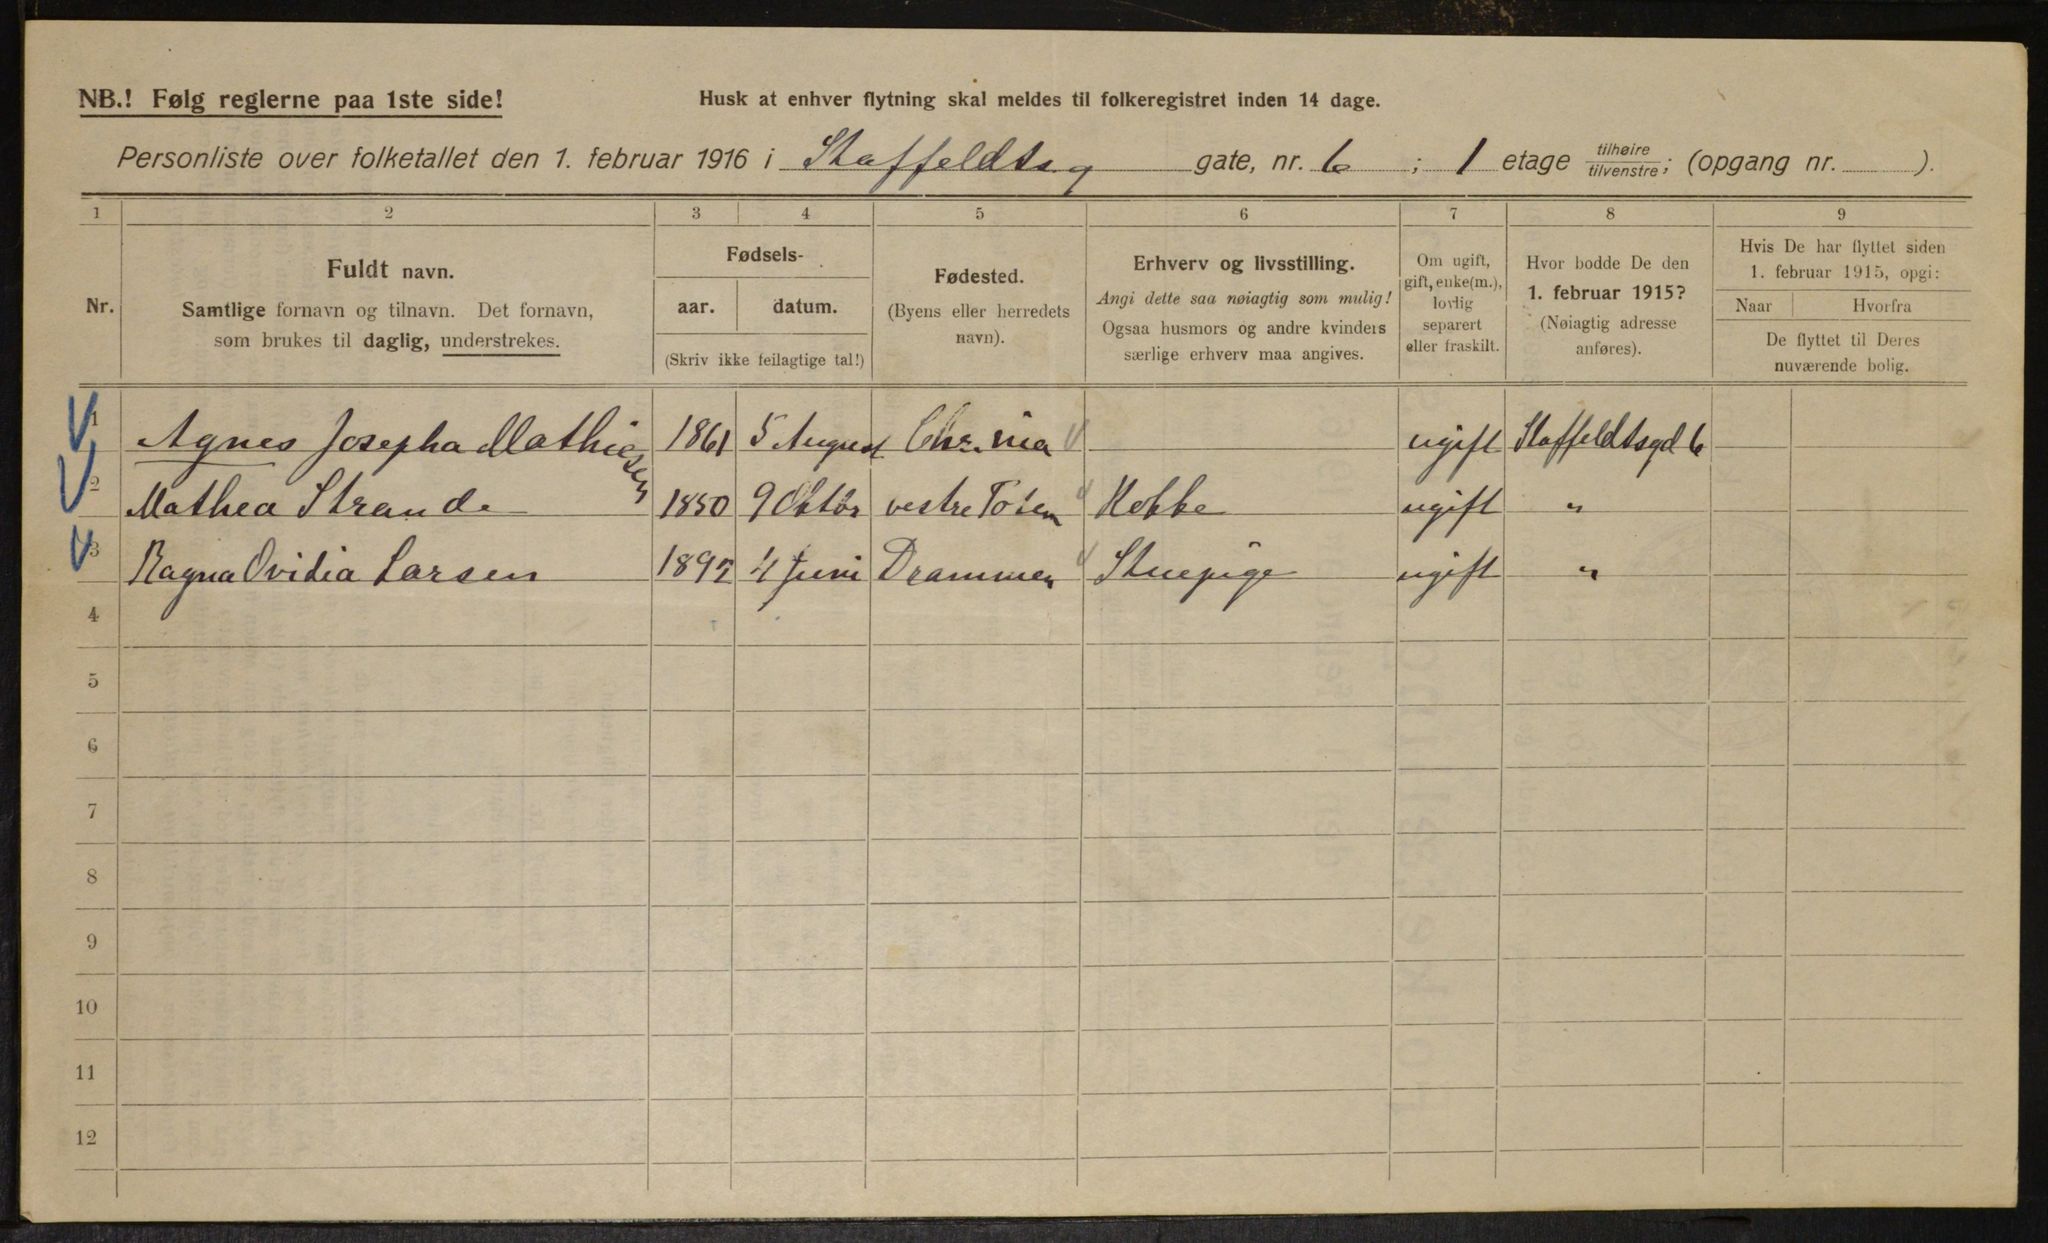 NB.! Følg reglerne paa 1ste side!
Husk at enhver flytning skal meldes til folkeregistret inden 14 dage.
Personliste over folketallet den 1. februar 1916 i Staffeldtsg gate, nr. 6; 1 etage tilhøire/tilvenstre; (opgang nr. ).
1 2 3 4 5 6 7 8 9
Nr.
Fuldt navn.
Samtlige fornavn og tilnavn. Det fornavn,
som brukes til daglig, understrekes.
Fødsels-
aar. datum.
(Skriv ikke feilagtige tal!)
Fødested.
(Byens eller herredets
navn).
Erhverv og livsstilling.
Angi dette saa nøiagtig som mulig!
Ogsaa husmors og andre kvinders
særlige erhverv maa angives.
Om ugift,
gift, enke(m.),
lovlig
separert
eller fraskilt.
Hvor bodde De den
1. februar 1915?
(Nøiagtig adresse
anføres).
Hvis De har flyttet siden
1. februar 1915, opgi:
Naar Hvorfra
De flyttet til Deres
nuværende bolig.
1 Agnes Josepha Mathiesen 1861 5 August Chr.nia ugift Staffeldtsgd 6
2 Mathea Strande 1850 9 Oktbr vestre Toten Kokke ugift "
3 Ragna Ovidia Larsen 1892 4 Juni Drammen Stuepige ugift "
4
5
6
7
8
9
10
11
12